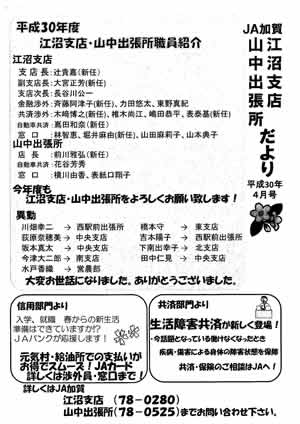 JA加賀
江沼支店
山中出張所
だより
平成30年
4月号
平成30年度
江沼支店・山中出張所職員紹介
江沼支店
支店長：辻貴嘉(新任)
副支店長：大宮正芳(新任)
支店次長：長谷川公一
金融渉外：斉藤阿津子(新任)、力田悠太、東野真紀
共済渉外：木崎博之(新任)、椎木尚江、嶋田恭平、表泰基(新任)
自動車共済：嵩田和奈(新任)
窓口：林智恵、堀井麻由(新任)、山田麻莉子、山本典子
山中出張所
店長：前川雅弘(新任)
自動車共済：花谷芳秀
窓口：横川由香、表紙口翔子
今年度も
江沼支店・山中出張所をよろしくお願い致します！
異動
川畑幸二 → 西駅前出張所 橋本守 → 東支店
荻原奈穂美 → 中央支店 吉本陽子 → 西駅前出張所
坂本真太 → 中央支店 下南出幸子 → 北支店
今津大二郎 → 南支店 田中仁見 → 中央支店
水戸香織 → 営農部
大変お世話になりました。ありがとうございました。
信用部門より
入学、就職 春からの新生活
準備はできていますか!?
JAバンクが応援します！
元気村・給油所での支払いが
お得でスムーズ！JAカード
詳しくは渉外員・窓口まで！
共済部門より
生活障害共済が新しく登場！
・今話題となっている働けなくなったとき
疾病・傷害による身体の障害状態を保障
共済・保険のご相談はJAへ！
詳しくはJA加賀
江沼支店 （78-0280）
山中出張所（78-0525）までお問い合わせ下さい。